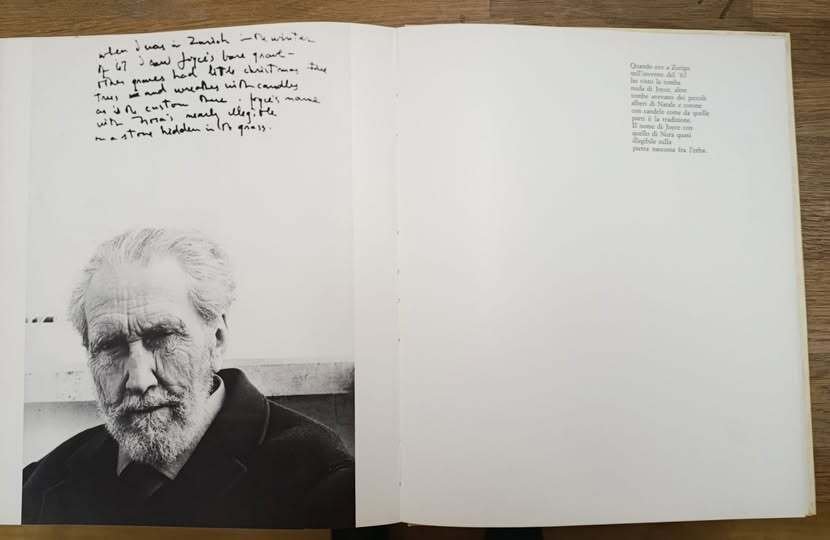 when I was in Zurich in the winter
of '67 I saw Joyce's bare grave –
other graves had little christmas
trees and wreathes with candles
as is the custom there. Joyce's name
with Nora's nearly illegible
on a stone hidden in the grass.
Quando ero a Zurigo
nell'inverno del '67
ho visto la tomba
nuda di Joyce, altre
tombe avevano dei piccoli
alberi di Natale e corone
con candele come da quelle
parti è la tradizione.
Il nome di Joyce con
quello di Nora quasi
illegibile sulla
pietra nascosta fra l'erba.